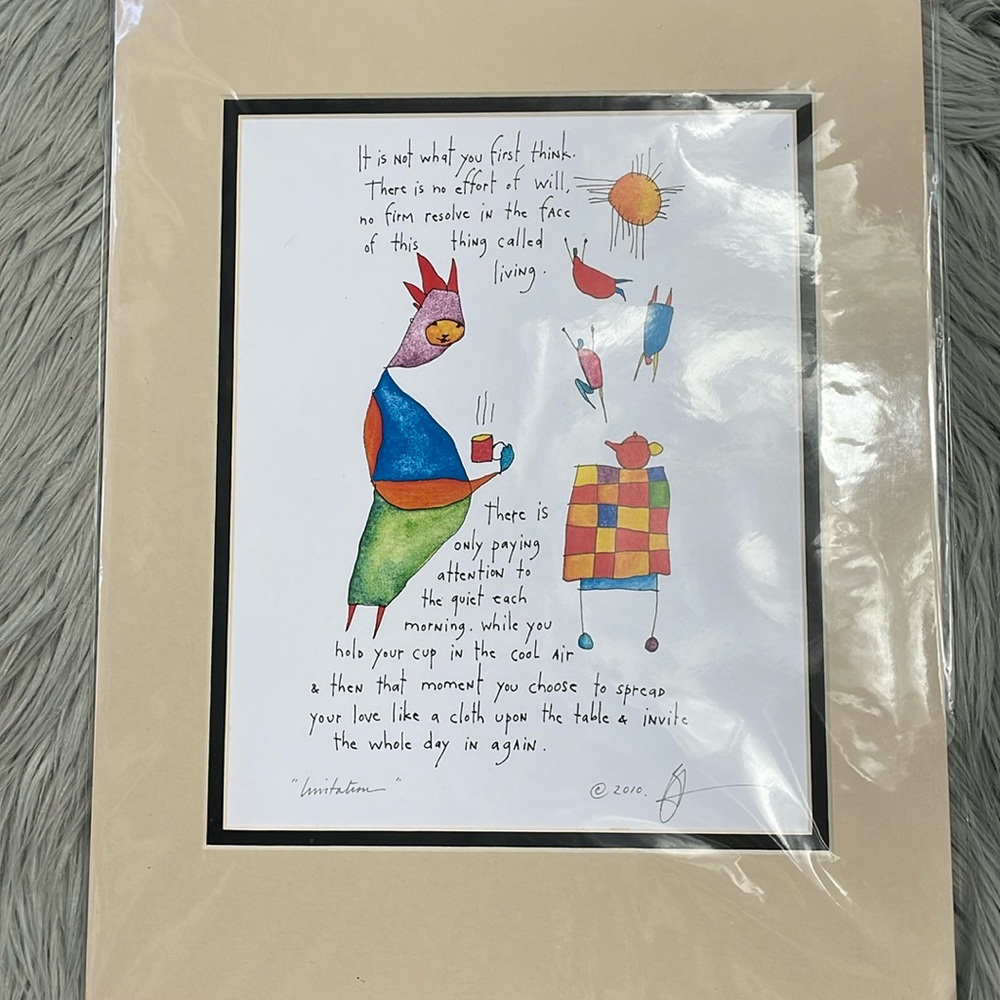 It is not what you first think.
There is no effort of will,
no firm resolve in the face
of this thing called
living.
There is
only paying
attention to
the quiet each
morning. while you
hold your cup in the cool air
& then that moment you choose to spread
your love like a cloth upon the table & invite
the whole day in again.
"Invitation"
© 2010.